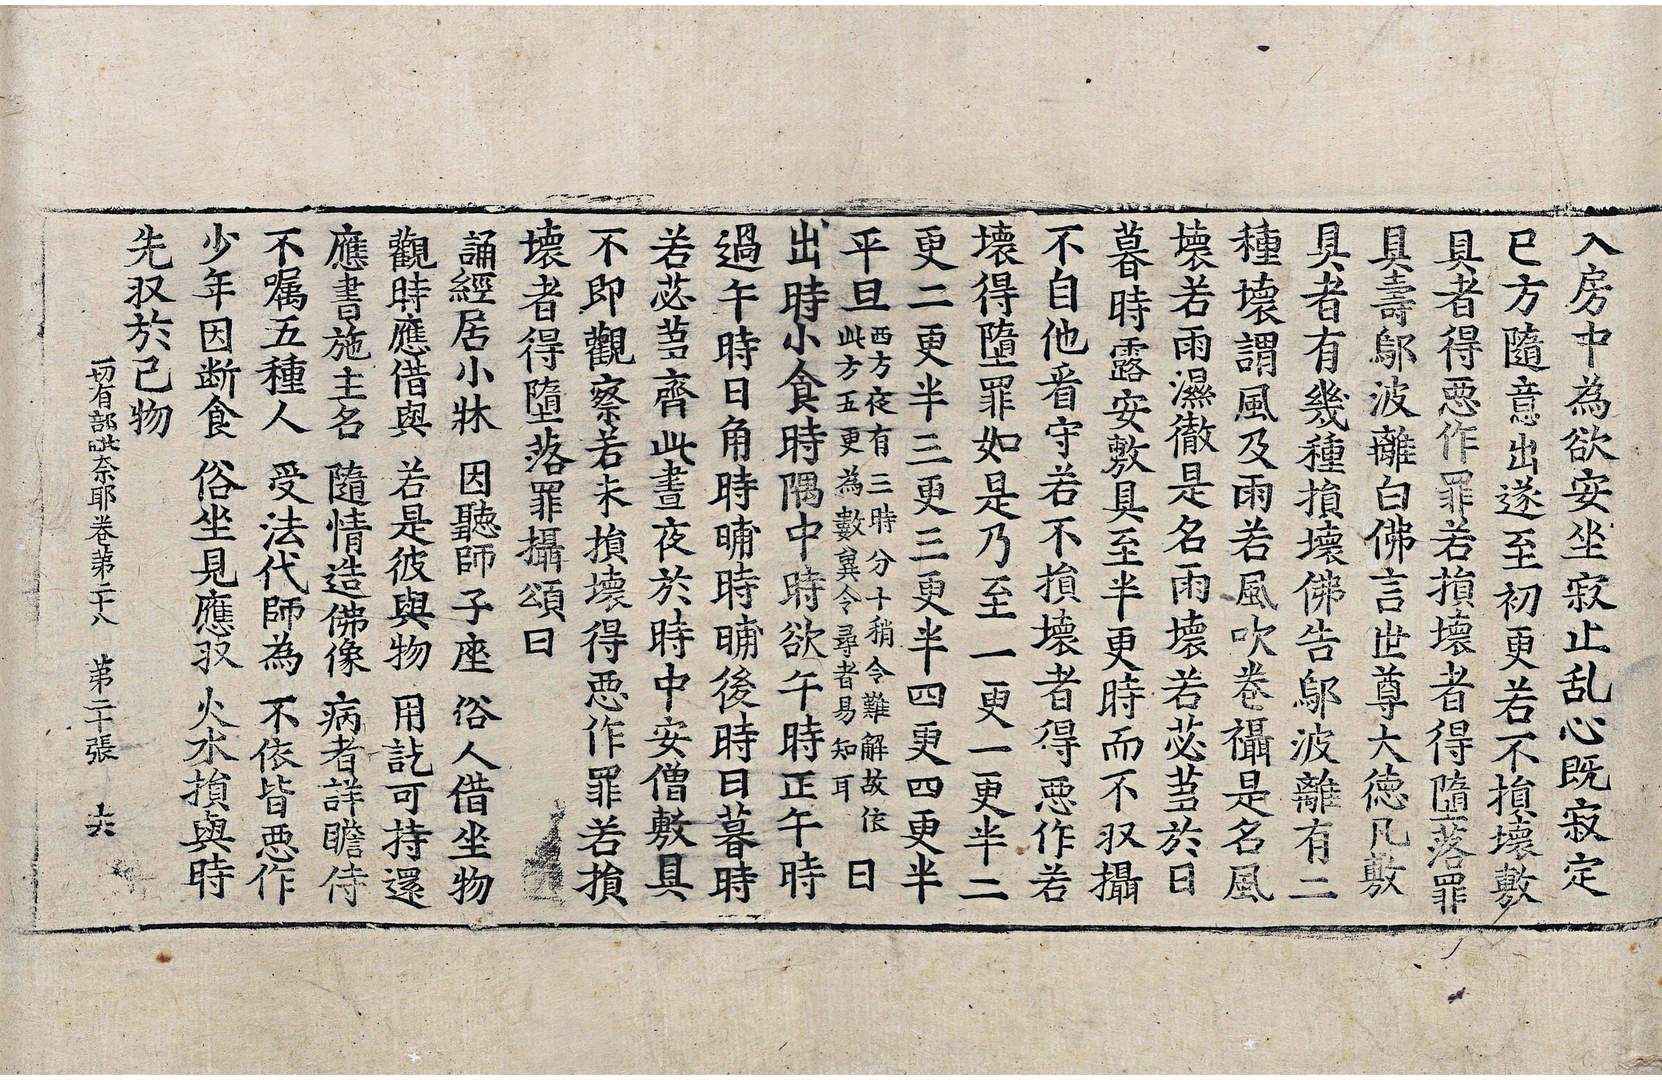 入房中為欲安坐寂止乱心既寂定
已方隨意出遂至初更若不損壞敷
具者得惡作罪若損壞者得墮落罪
具壽鄔波離白佛言世尊大德凡敷
具者有幾種損壞佛告鄔波離有二
種壞謂風及雨若風吹卷襵是名風
壞若雨濕徹是名雨壞若苾芻於日
暮時露安敷具至半更時而不収攝
不自他看守若不損壞者得惡作若
壞得墮罪如是乃至一更一更半二
更二更半三更三更半四更四更半
平旦西方夜有三時分十稍令難解故依此方五更為數冀令尋者易知耳日
出時小食時隅中時欲午時正午時
過午時日角時晡時晡後時日暮時
若苾芻齊此晝夜於時中安僧敷具
不即觀察若未損壞得惡作罪若損
壞者得墮落罪攝頌曰
誦經居小牀 因聽師子座 俗人借坐物
觀時應借與 若是彼與物 用訖可持還
應書施主名 隨情造佛像 病者詳瞻侍
不囑五種人 受法代師為 不依皆惡作
少年因断食 俗坐見應収 火水損與時
先収於己物
一切有部毗奈耶卷第二十八 第二十張 六